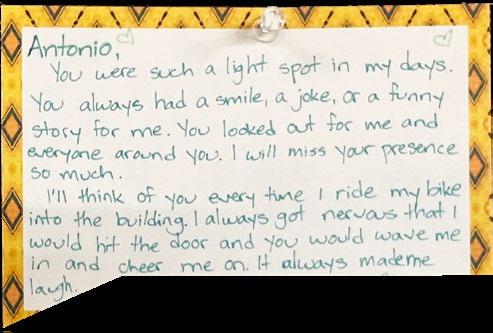 Antonio,
You were such a light spot in my days.
You always had a smile, a joke, or a funny
story for me. You looked out for me and
everyone around you. I will miss your presence
so much.
I'll think of you every time I ride my bike
into the building. I always got nervous that I
would hit the door and you would wave me
in and cheer me on. It always made me
laugh.